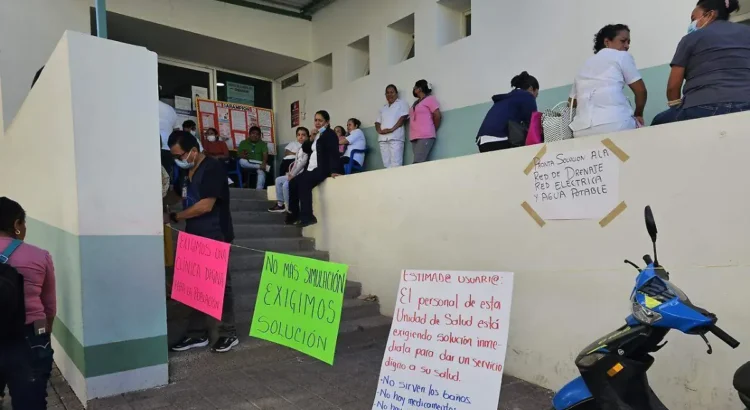 PRONTA SOLUCIÓN A LA
RED DE DRENAJE
RED ELÉCTRICA
Y AGUA POTABLE
EXIGIMOS UNA
CLÍNICA DIGNA
PARA LA POBLACIÓN
NO MAS SIMULACIÓN
EXIGIMOS
SOLUCIÓN
ESTIMAD@ USUARI@:
El personal de esta
Unidad de Salud está
exigiendo solución inme-
diata para dar un servicio
digno a su salud.
-No sirven los baños.
-No hay medicamentos
-No hay